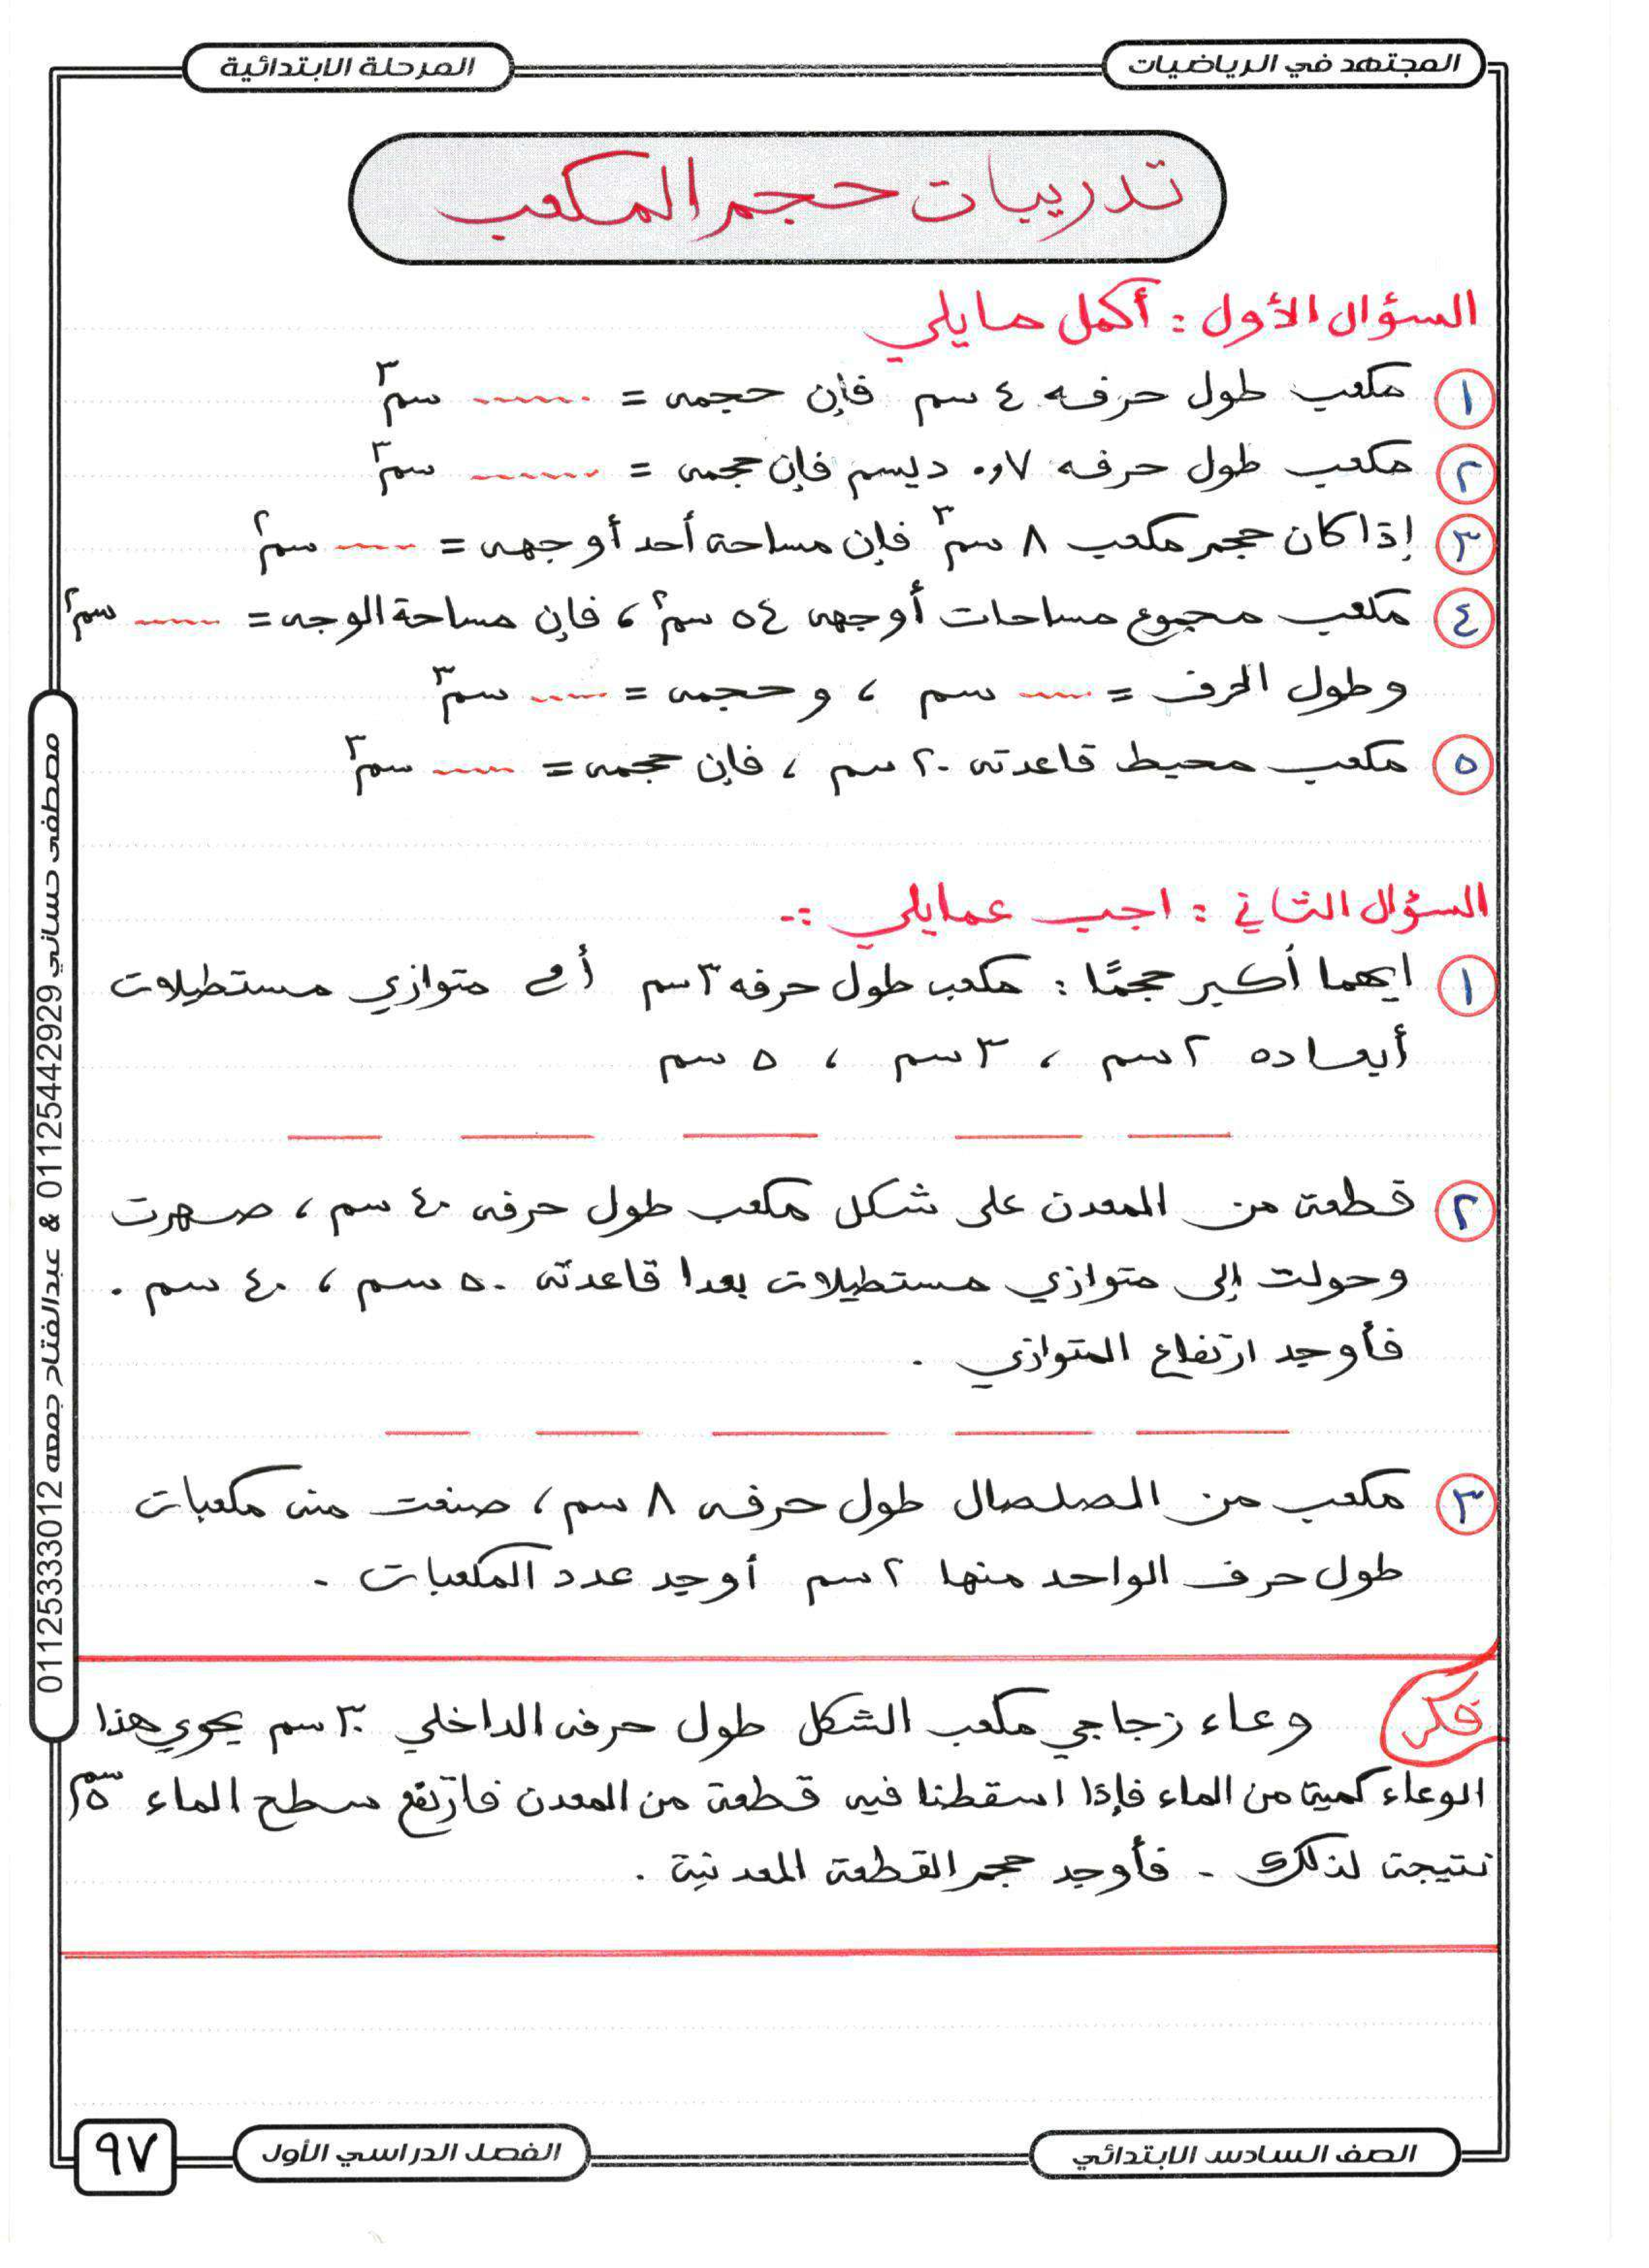 المجتهد في الرياضيات
المرحلة الابتدائية
تدريبات حجم المكعب
السؤال الأول : أكمل مايلي
١ مكعب طول حرفه ٤ سم فإن حجمه = ...... سم٣
٢ مكعب طول حرفه ٠,٧ ديسم فإن حجمه = ...... سم٣
٣ إذا كان حجم مكعب ٨ سم٣ فإن مساحة أحد أوجهه = ...... سم٢
٤ مكعب مجموع مساحات أوجهه ٥٤ سم٢ ، فإن مساحة الوجه = ...... سم٢
وطول الحرف = ...... سم ، وحجمه = ...... سم٣
٥ مكعب محيط قاعدته ٢٠ سم ، فإن حجمه = ...... سم٣
السؤال الثاني : اجب عمايلي :-
١ ايهما أكبر حجمًا : مكعب طول حرفه ٣ سم أم متوازي مستطيلات
أبعاده ٢ سم ، ٣ سم ، ٥ سم
٢ قطعة من المعدن على شكل مكعب طول حرفه ٤٠ سم ، صهرت
وحولت إلى متوازي مستطيلات بعدا قاعدته ٥٠ سم ، ٤٠ سم .
فأوجد ارتفاع المتوازي .
٣ مكعب من الصلصال طول حرفه ٨ سم ، صنعت منه مكعبات
طول حرف الواحد منها ٢ سم أوجد عدد المكعبات .
فكر وعاء زجاجي مكعب الشكل طول حرفه الداخلي ٣٠ سم يحوي هذا
الوعاء كمية من الماء فإذا اسقطنا فيه قطعة من المعدن فارتفع سطح الماء
نتيجة لذلك - فأوجد حجم القطعة المعدنية .
مصطفى حساني 01125442929 & عبدالفتاح جمعه 01125333012
الصف السادس الابتدائي
الفصل الدراسي الأول
٩٧